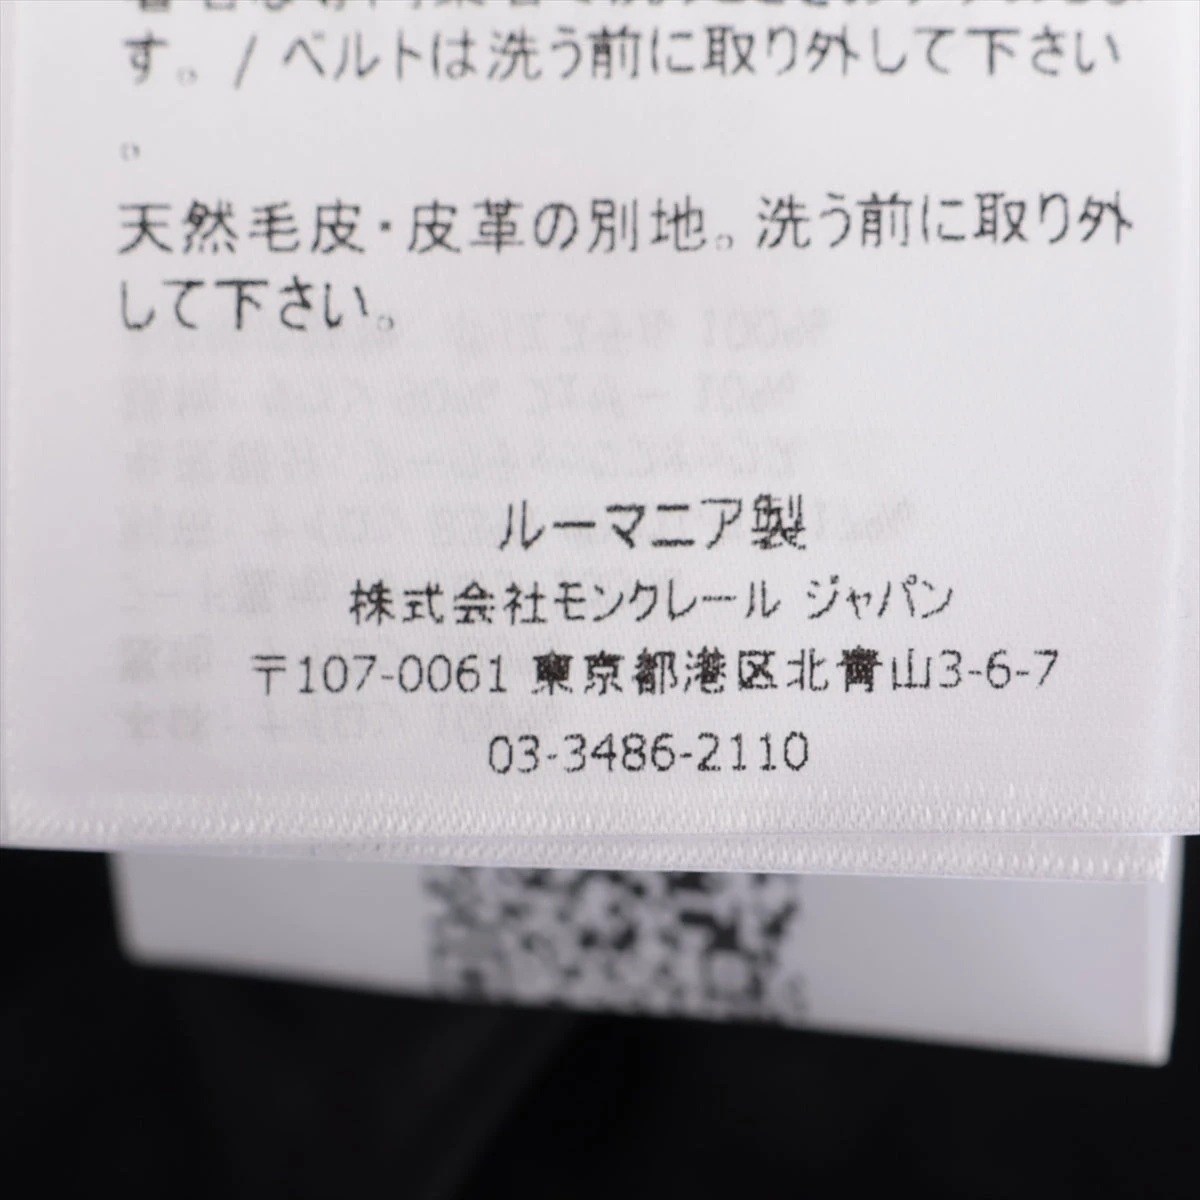 す。/ ベルトは洗う前に取り外して下さい
。
天然毛皮・皮革の別地。洗う前に取り外
して下さい。
ルーマニア製
株式会社モンクレール ジャパン
〒107-0061 東京都港区北青山3-6-7
03-3486-2110